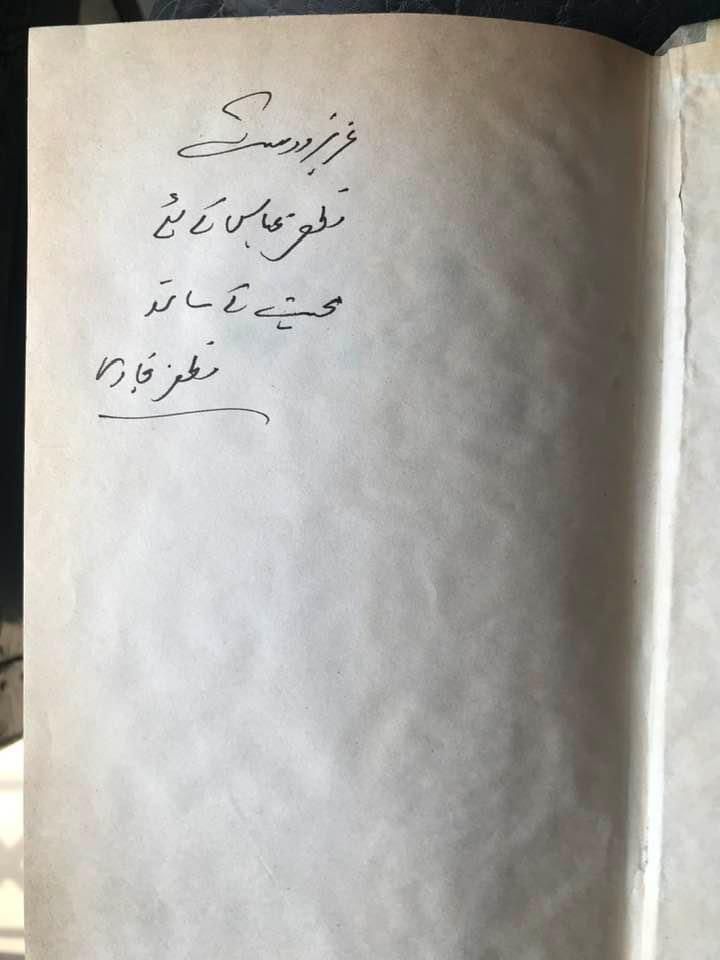 عزیز دوست
مظفر عباس کے لئے
محبت کے ساتھ
مظفر